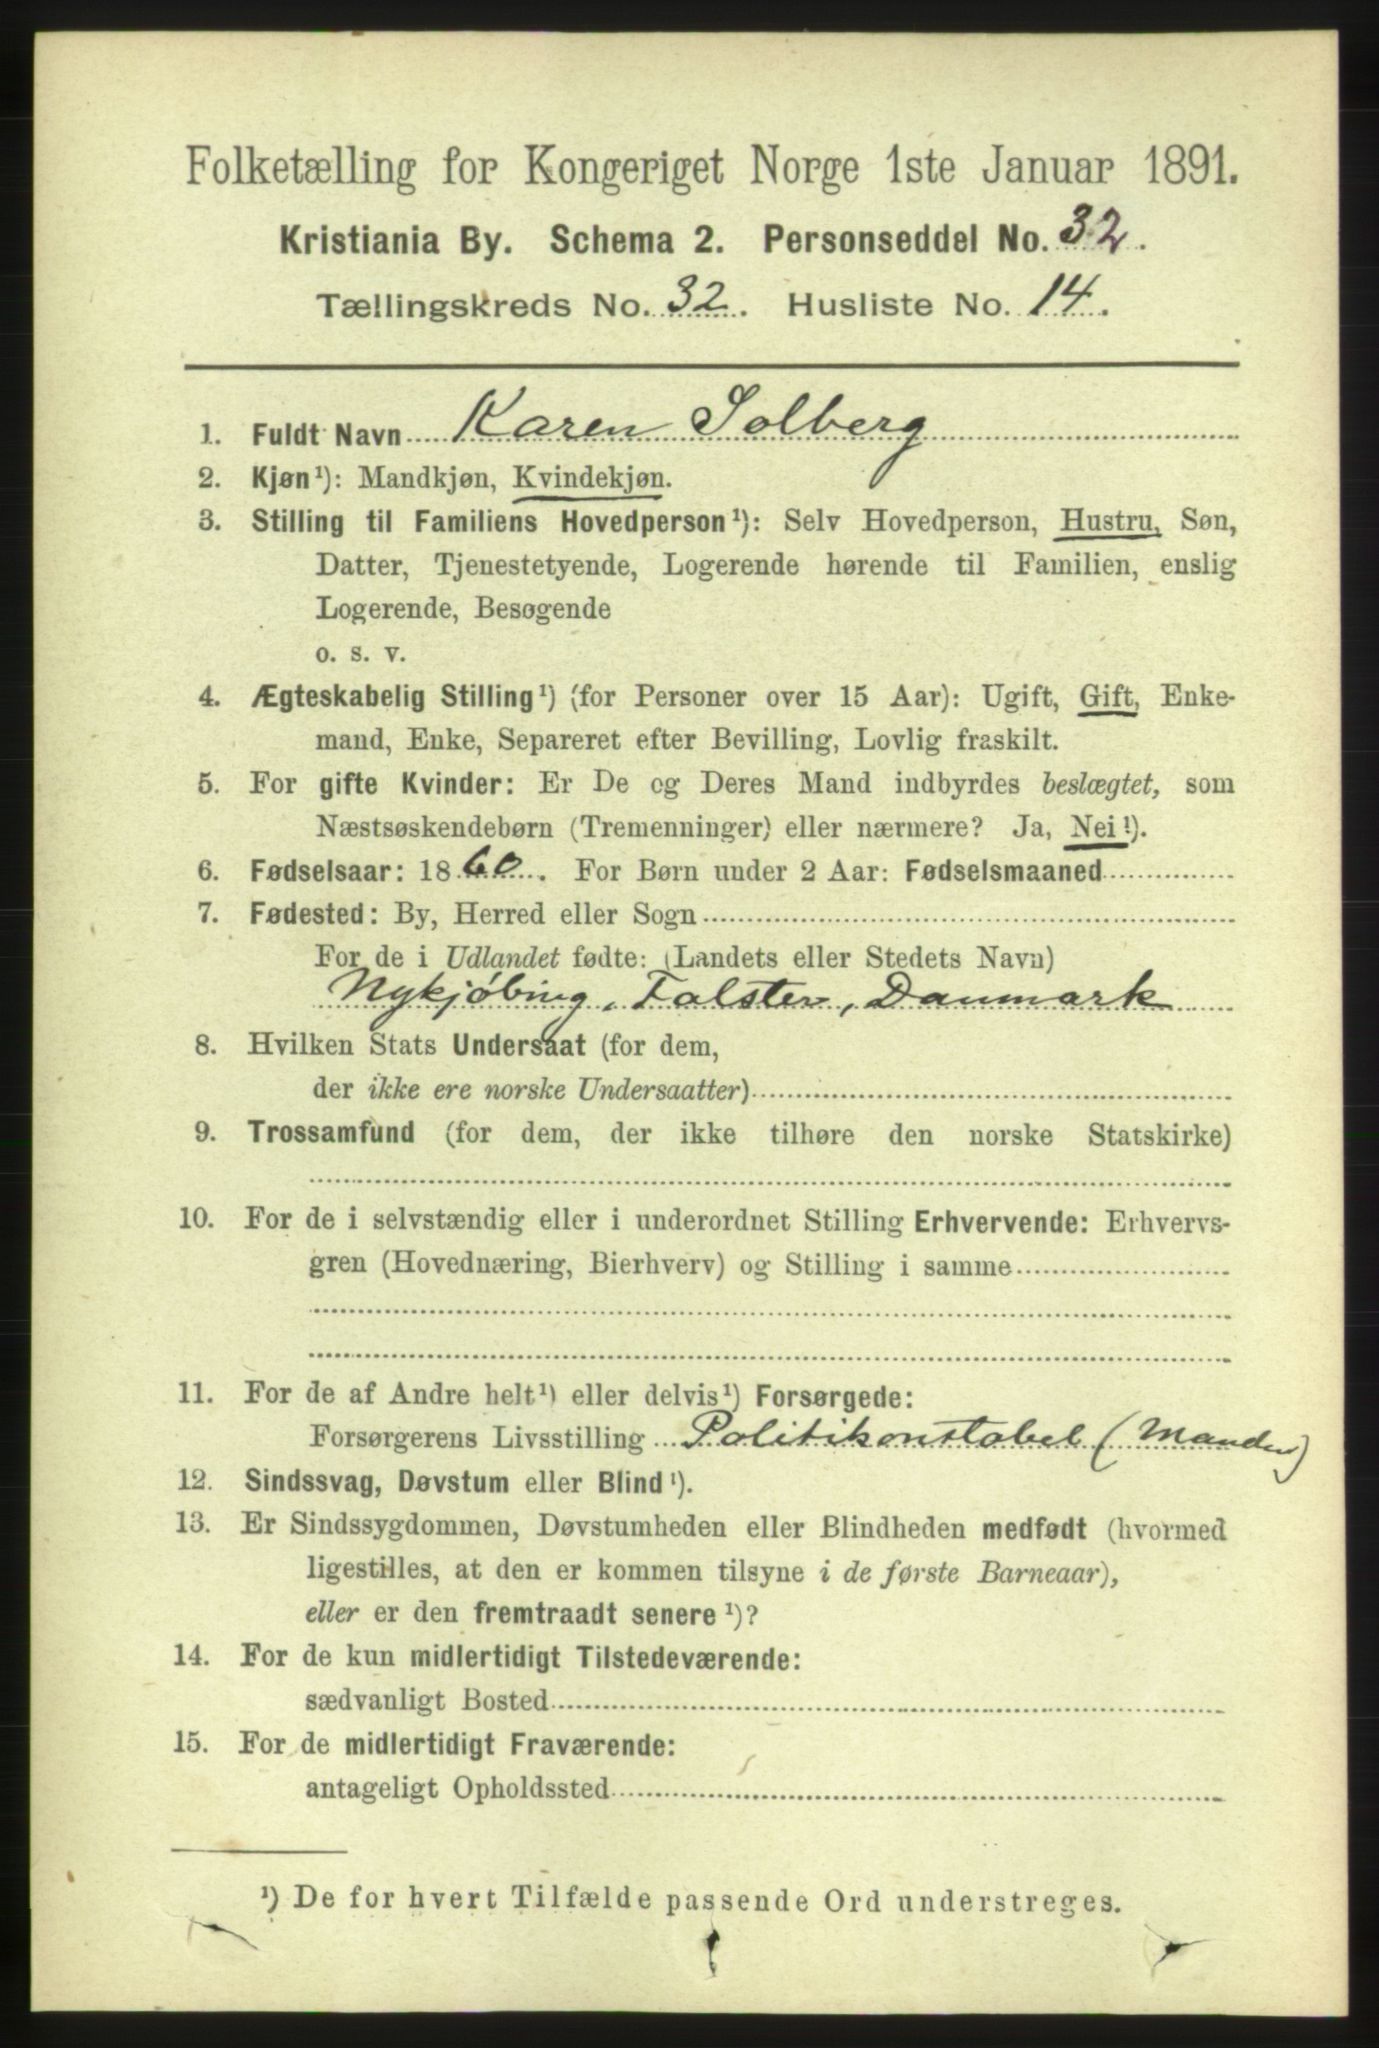 Folketælling for Kongeriget Norge 1ste Januar 1891.
Kristiania By. Schema 2. Personseddel No. 32.
Tællingskreds No. 32. Husliste No. 14.
1. Fuldt Navn Karen Solberg
2. Kjøn¹): Mandkjøn, Kvindekjøn.
3. Stilling til Familiens Hovedperson¹): Selv Hovedperson, Hustru, Søn,
Datter, Tjenestetyende, Logerende hørende til Familien, enslig
Logerende, Besøgende
o. s. v.
4. Ægteskabelig Stilling¹) (for Personer over 15 Aar): Ugift, Gift, Enke-
mand, Enke, Separeret efter Bevilling, Lovlig fraskilt.
5. For gifte Kvinder: Er De og Deres Mand indbyrdes beslægtet, som
Næstsøskendebørn (Tremenninger) eller nærmere? Ja, Nei¹).
6. Fødselsaar: 1860. For Børn under 2 Aar: Fødselsmaaned
7. Fødested: By, Herred eller Sogn
For de i Udlandet fødte: (Landets eller Stedets Navn)
Nykjøbing, Falster, Danmark
8. Hvilken Stats Undersaat (for dem,
der ikke ere norske Undersaatter)
9. Trossamfund (for dem, der ikke tilhøre den norske Statskirke)
10. For de i selvstændig eller i underordnet Stilling Erhvervende: Erhvervs-
gren (Hovednæring, Bierhverv) og Stilling i samme
11. For de af Andre helt¹) eller delvis¹) Forsørgede:
Forsørgerens Livsstilling Politikonstabel (Manden)
12. Sindssvag, Døvstum eller Blind¹).
13. Er Sindssygdommen, Døvstumheden eller Blindheden medfødt (hvormed
ligestilles, at den er kommen tilsyne i de første Barneaar),
eller er den fremtraadt senere¹)?
14. For de kun midlertidigt Tilstedeværende:
sædvanligt Bosted
15. For de midlertidigt Fraværende:
antageligt Opholdssted
¹) De for hvert Tilfælde passende Ord understreges.